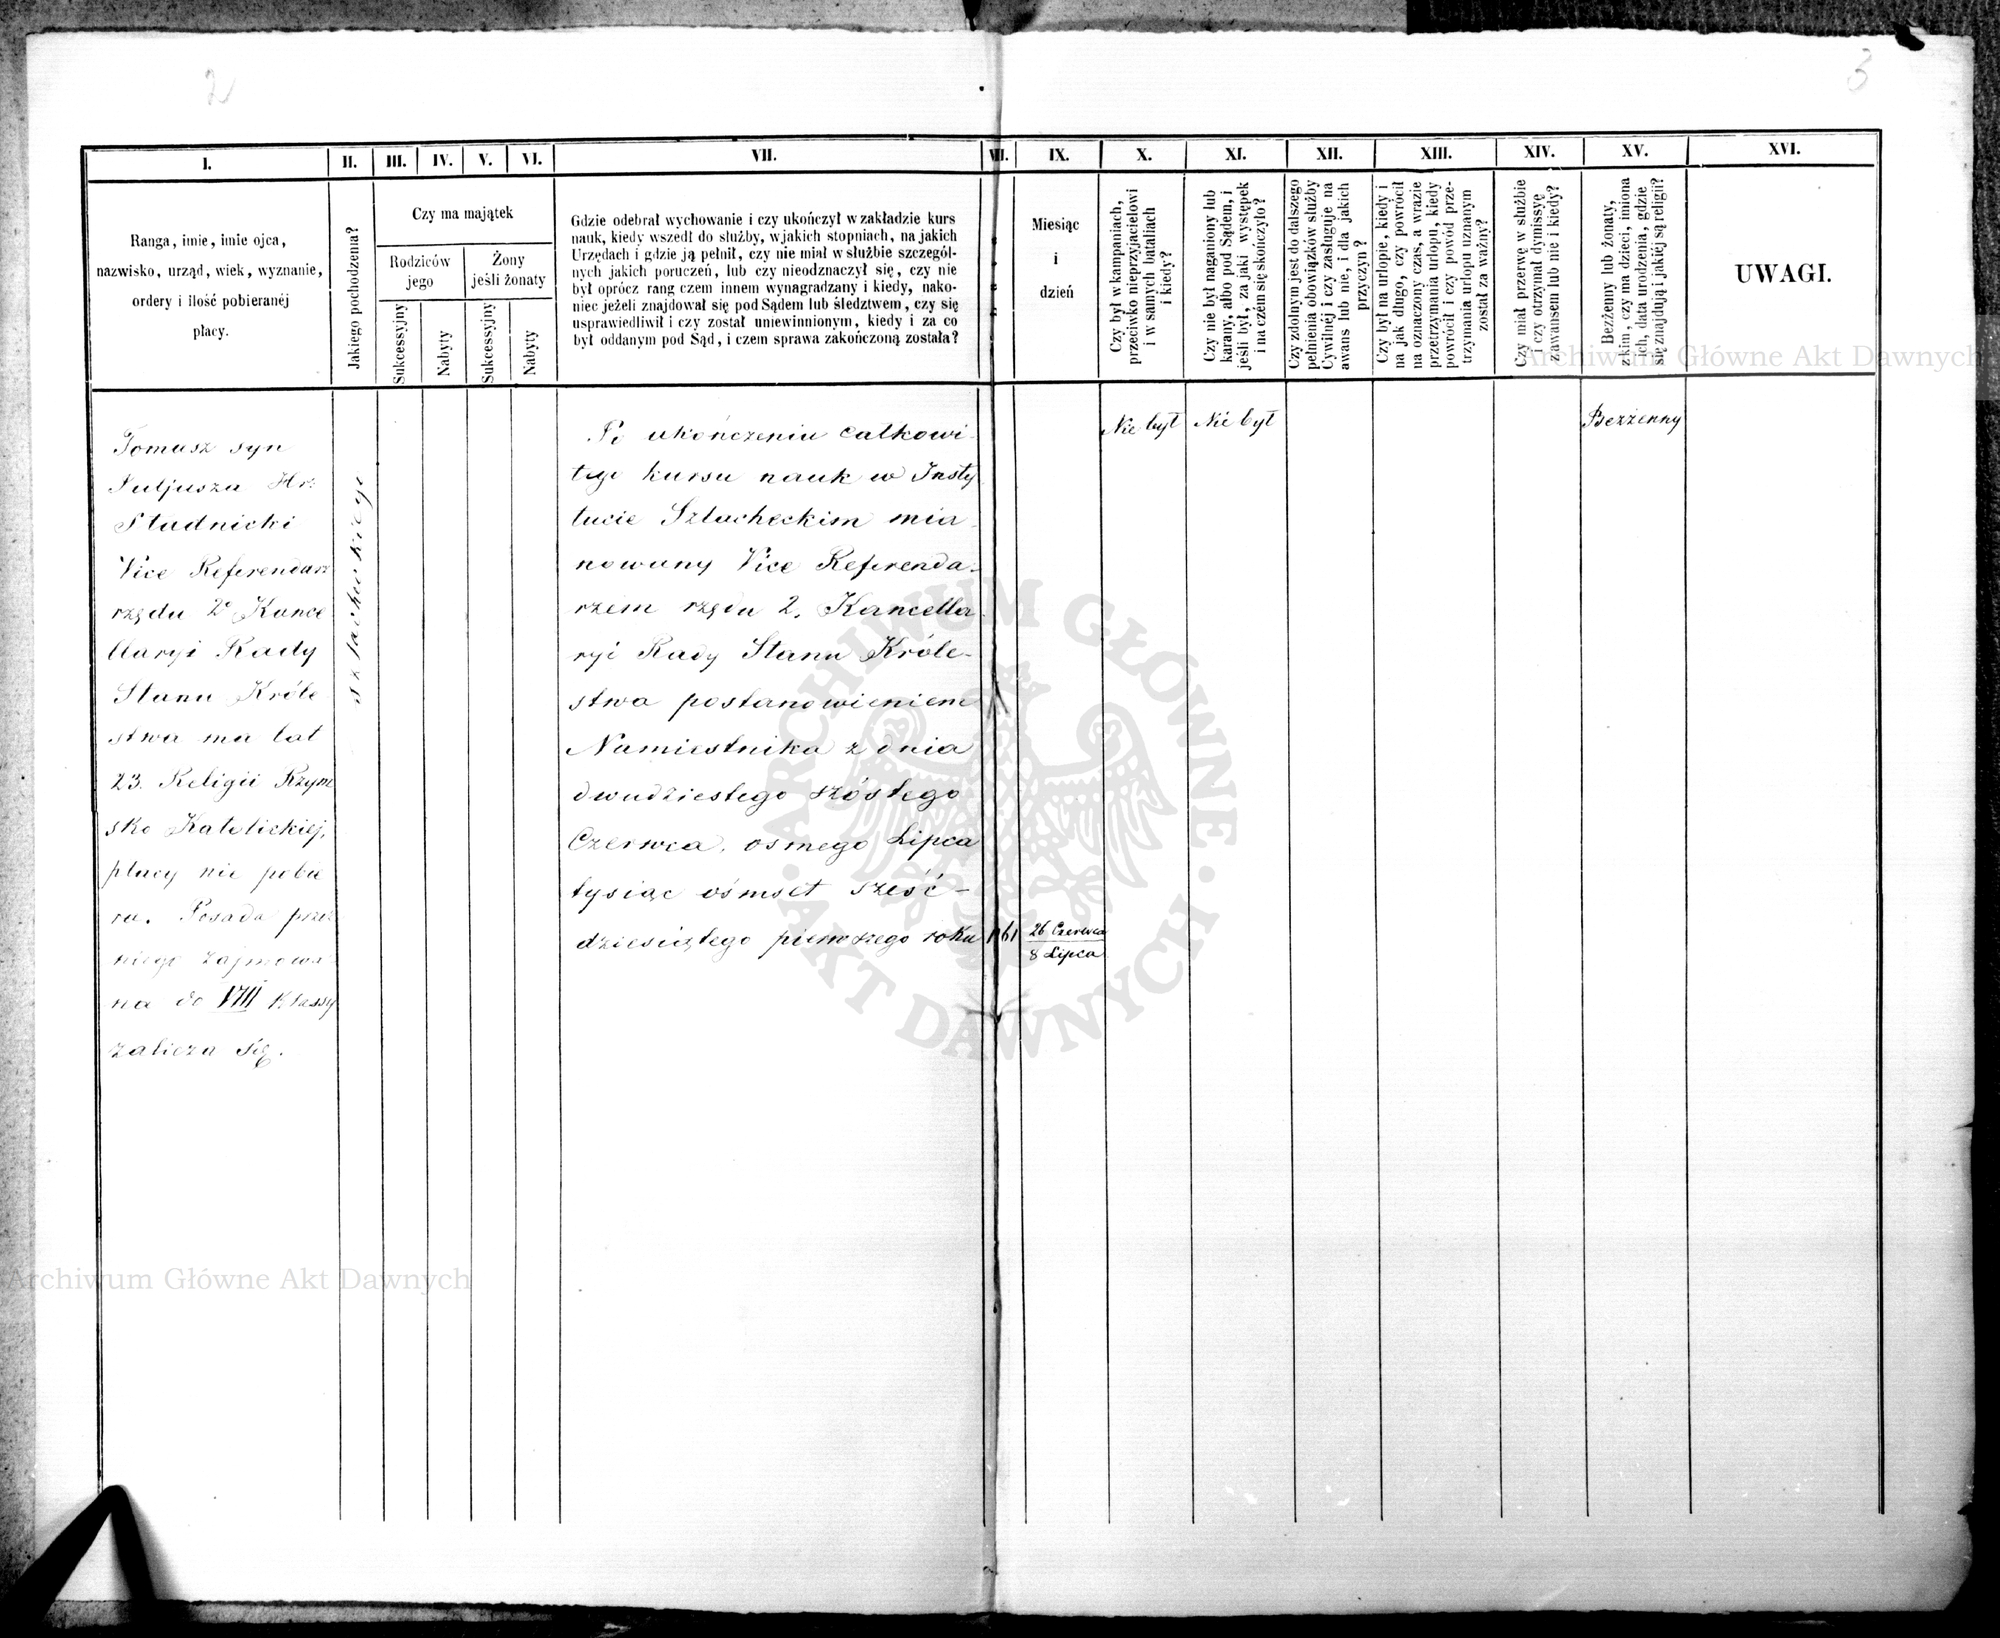 2
3
I.
II.
III.
IV.
V.
VI.
VII.
IX.
X.
XI.
XII.
XIII.
XIV.
XV.
XVI.
Ranga, imie, imie ojca,
nazwisko, urząd, wiek, wyznanie,
ordery i ilość pobieranéj
płacy.
Jakiego pochodzenia?
Czy ma majątek
Rodziców
jego
Żony
jeśli żonaty
Sukcessyjny
Nabyty
Sukcessyjny
Nabyty
Gdzie odebrał wychowanie i czy ukończył w zakładzie kurs
nauk, kiedy wszedł do służby, w jakich stopniach, na jakich
Urzędach i gdzie ją pełnił, czy nie miał w służbie szczegól-
nych jakich poruczeń, lub czy nieodznaczył się, czy nie
był oprócz rang czem innem wynagradzany i kiedy, nako-
niec jeżeli znajdował się pod Sądem lub śledztwem, czy się
usprawiedliwił i czy został uniewinnionym, kiedy i za co
był oddanym pod Sąd, i czem sprawa zakończoną została?
Miesiąc
i
dzień
Czy był w kampaniach,
przeciwko nieprzyjacielowi
i w samych bataliach
i kiedy?
Czy nie był naganiony lub
karany, albo pod Sądem, i
jeśli był, za jaki występek
i na czém się skończyło?
Czy zdolnym jest do dalszego
pełnienia obowiązków służby
Cywilnéj i czy zasługuje na
awans lub nie, i dla jakich
przyczyn?
Czy był na urlopie, kiedy i
na jak długo, czy powrócił
na oznaczony czas, a w razie
przetrzymania urlopu, kiedy
powrócił i czy powód prze-
trzymania urlopu uznanym
został za ważny?
Czy miał przerwę w służbie
i czy otrzymał dymissyę
z awansem lub nie i kiedy?
Bezżenny lub żonaty,
z kim, czy ma dzieci, imiona
ich, data urodzenia, gdzie
się znajdują i jakiéj są religii?
UWAGI.
Tomasz syn
Juljusza Hr:
Studnicki
Vice Referendarz
rzędu 2º Kance
llaryi Rady
Stanu Króle
stwa ma lat
23. Religii Rzym
sko Katolickiej,
płacy nie pobie
ra. Posada przez
niego zajmowa
na do VIII Klassy
zalicza się.
szlacheckiego
Po ukończeniu całkowi-
tego kursu nauk w Insty
tucie Szlacheckim mia-
nowany Vice Referenda-
rzem rzędu 2. Kancella-
ryi Rady Stanu Króle-
stwa postanowieniem
Namiestnika z dnia
dwudziestego szóstego
Czerwca, osmego Lipca
tysiąc ośmset sześć-
dziesiątego pierwszego roku
26 Czerwca
8 Lipca
Nie był
Nie był
Bezżenny
Archiwum Główne Akt Dawnych
ARCHIWUM GŁÓWNE
· AKT DAWNYCH ·
Archiwum Główne Akt Dawnych